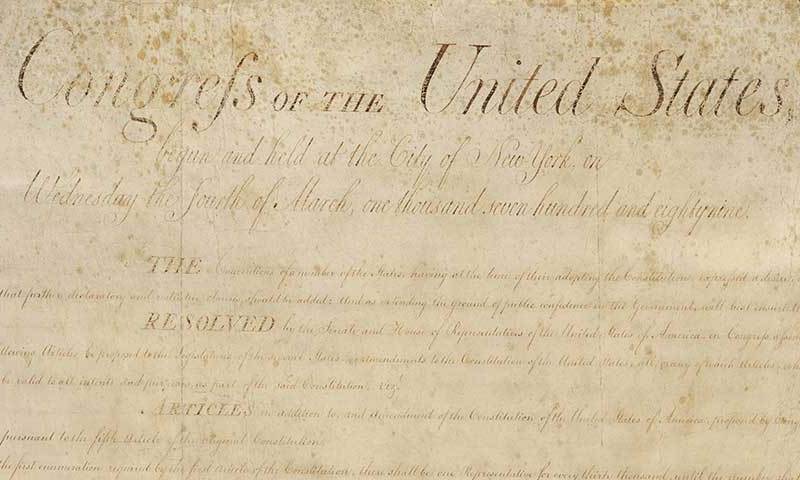 Congreſs OF THE United States,
begun and held at the City of New York, on
Wednesday the fourth of March, one thousand seven hundred and eighty nine.
THE Conventions of a number of the States, having at the time of their adopting the Constitution, expressed a desire,
that further declaratory and restrictive clauses should be added: And as extending the ground of public confidence in the Government, will best ensure
RESOLVED by the Senate and House of Representatives of the United States of America, in Congress
Articles be proposed to the Legislatures of the several States, as amendments to the Constitution of the United States, all, or any of which Articles,
be valid to all intents and purposes, as part of the said Constitution; viz.
ARTICLES in addition to, and Amendment of the Constitution of the United States of America, proposed by
pursuant to the fifth Article of the original Constitution.
the first enumeration required by the first article of the Constitution, there shall be one Representative for every thirty thousand, until the number